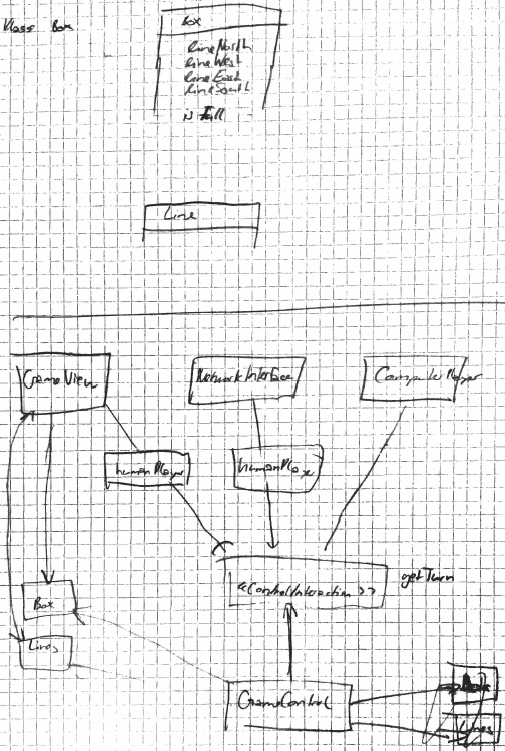 Klass Box
Box
lineNorth
lineWest
lineEast
lineSouth
isFull
Line
GameView
NetworkInterface
ComputerPlayer
humanPlayer
humanPlayer
<<ControlInteraction>>
getTurn
Box
Lines
GameControl
Lines